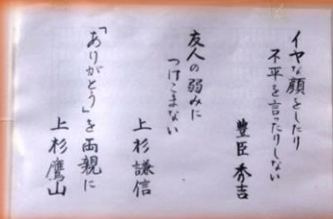 イヤな顔をしたり
不平を言ったりしない
豊臣秀吉
友人の弱みに
つけこまない
上杉謙信
「ありがとう」を両親に
上杉鷹山